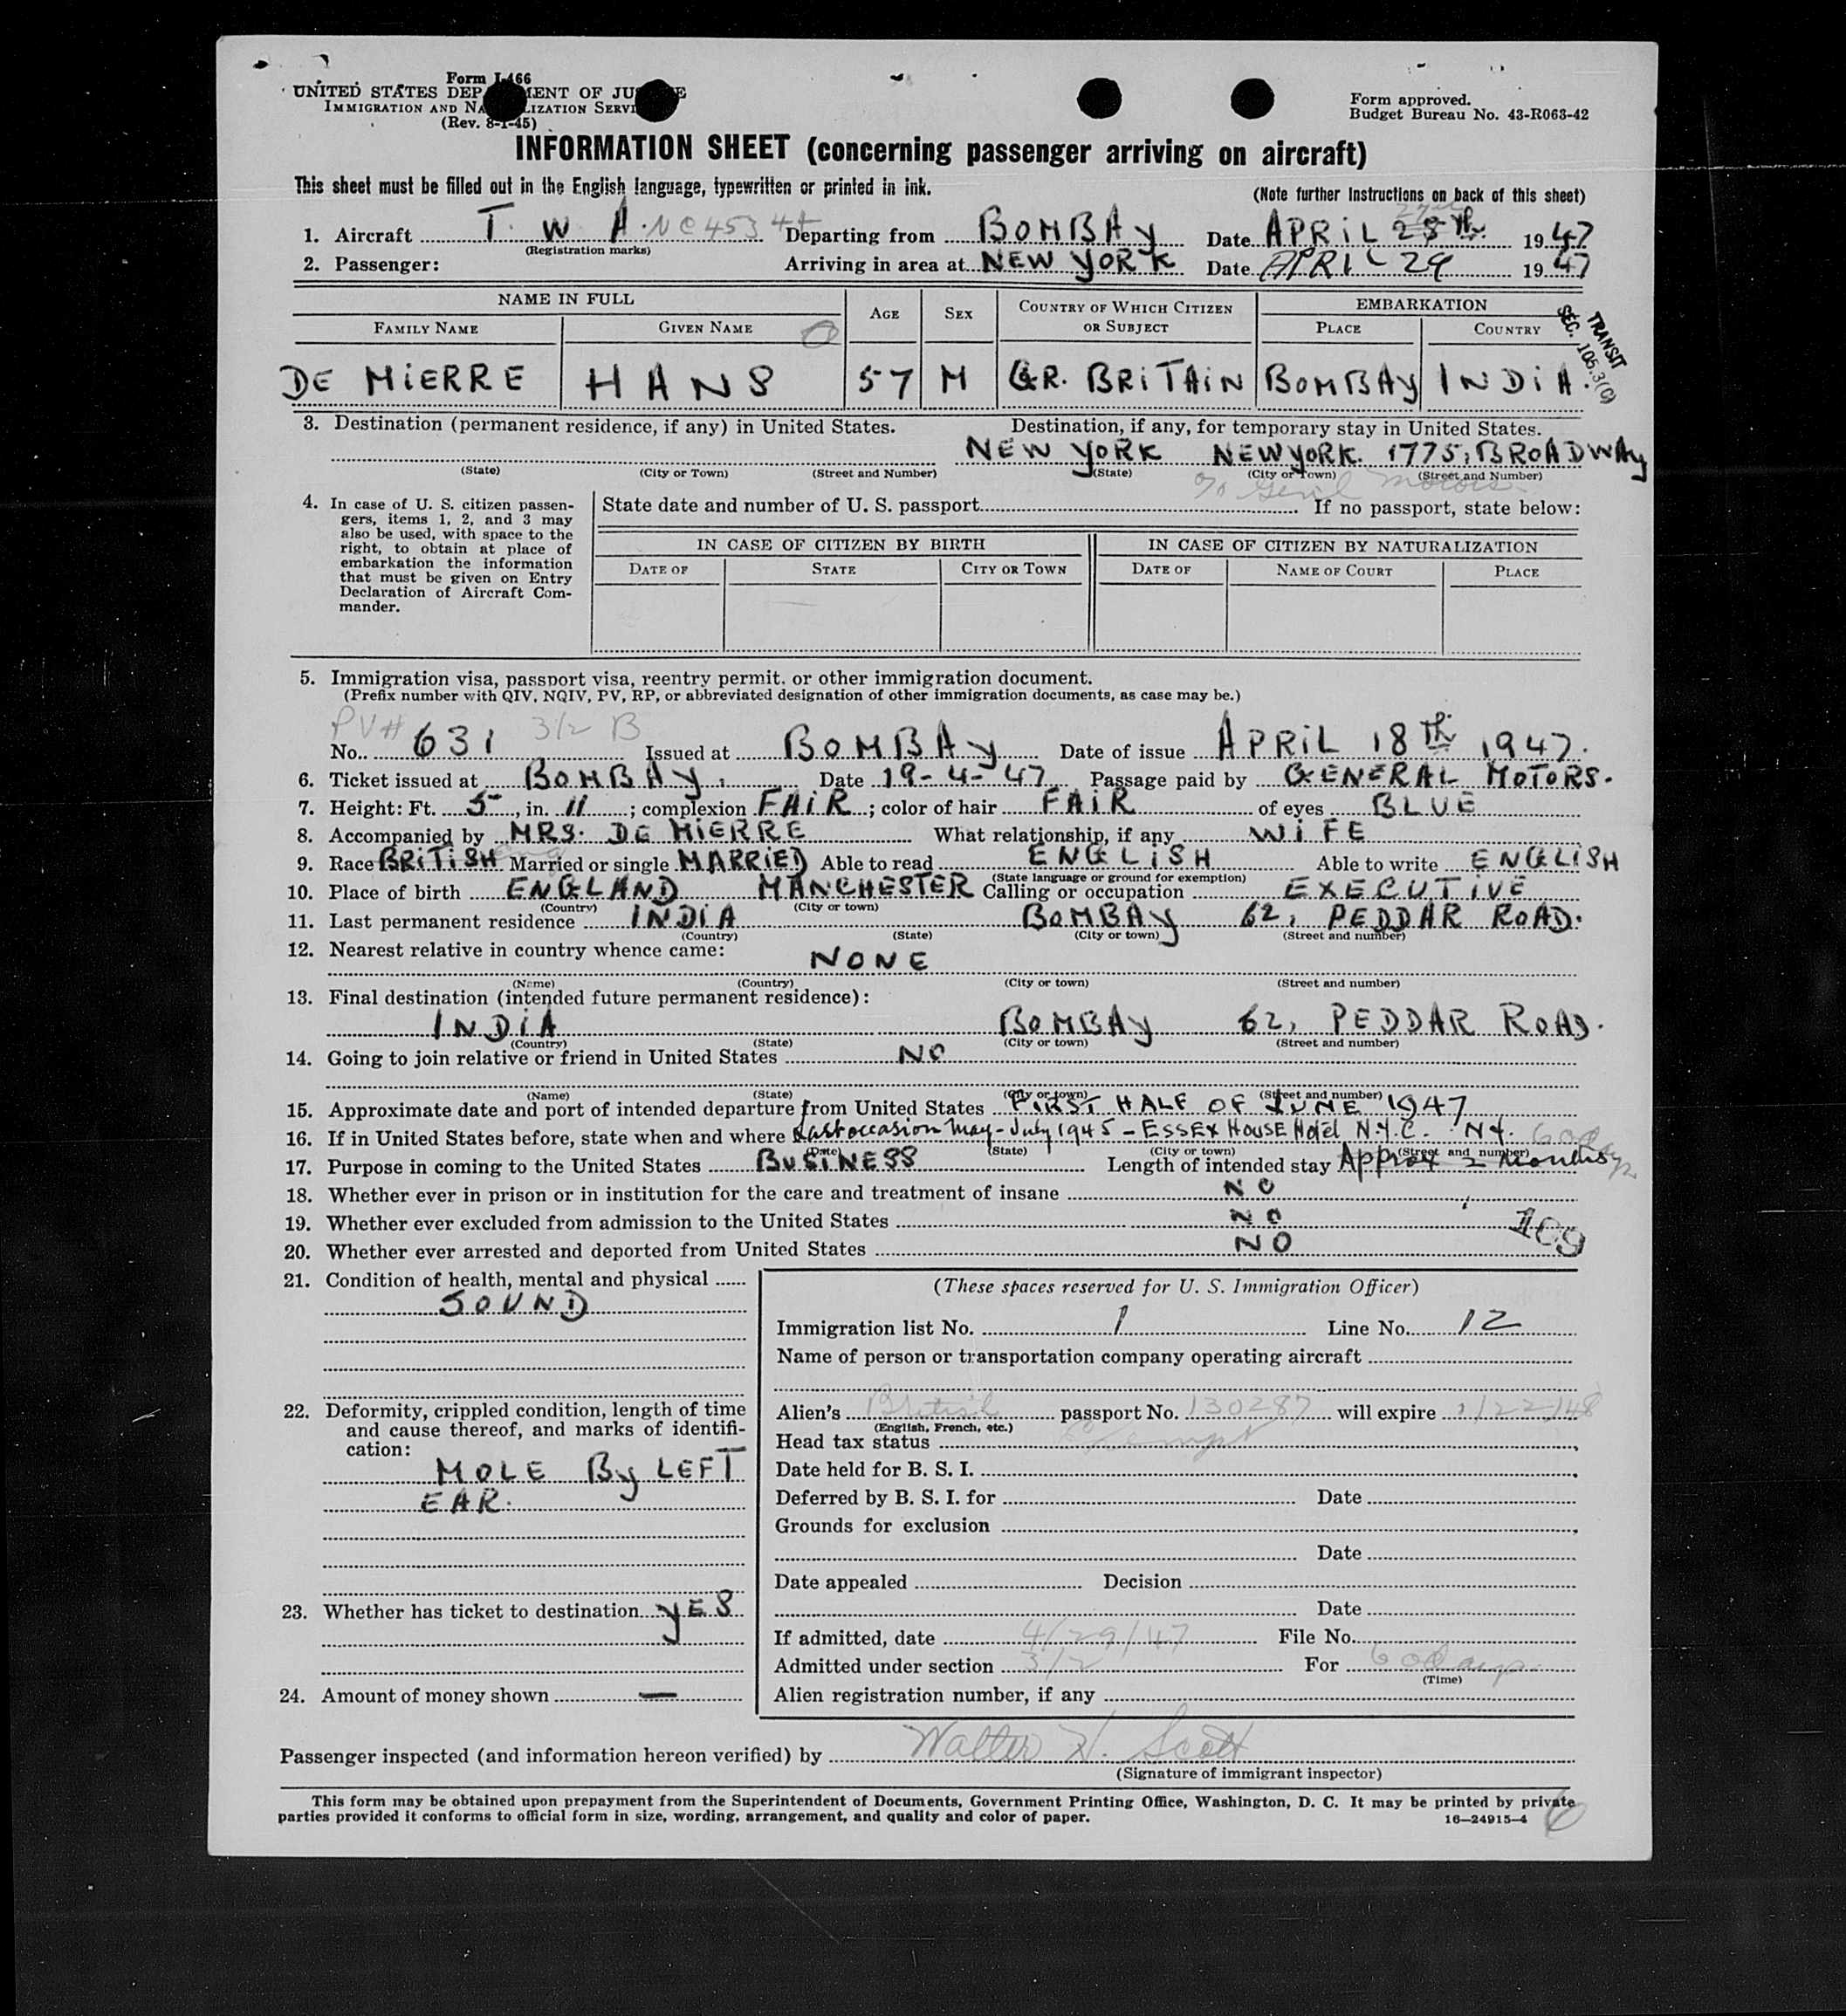 Form I-466
UNITED STATES DEPARTMENT OF JUSTICE
IMMIGRATION AND NATURALIZATION SERVICE
(Rev. 8-1-45)
Form approved.
Budget Bureau No. 43-R063-42
INFORMATION SHEET (concerning passenger arriving on aircraft)
This sheet must be filled out in the English language, typewritten or printed in ink.
(Note further instructions on back of this sheet)
1. Aircraft T. W. A. NC45344 Departing from BOMBAY Date APRIL 28th 1947
(Registration marks)
2. Passenger: Arriving in area at NEW YORK Date APRIL 29 1947
NAME IN FULL AGE SEX COUNTRY OF WHICH CITIZEN OR SUBJECT EMBARKATION
FAMILY NAME GIVEN NAME PLACE COUNTRY
TRANSIT
SEC. 105.3(c)
DE MIERRE HANS 57 M GR. BRITAIN BOMBAY INDIA.
3. Destination (permanent residence, if any) in United States. Destination, if any, for temporary stay in United States.
NEW YORK NEW YORK. 1775, BROADWAY
(State) (City or Town) (Street and Number) (State) (City or Town) (Street and Number)
c/o Genl Motors
4. In case of U. S. citizen passengers, items 1, 2, and 3 may also be used, with space to the right, to obtain at place of embarkation the information that must be given on Entry Declaration of Aircraft Commander.
State date and number of U. S. passport If no passport, state below:
IN CASE OF CITIZEN BY BIRTH IN CASE OF CITIZEN BY NATURALIZATION
DATE OF STATE CITY OR TOWN DATE OF NAME OF COURT PLACE
5. Immigration visa, passport visa, reentry permit, or other immigration document.
(Prefix number with QIV, NQIV, PV, RP, or abbreviated designation of other immigration documents, as case may be.)
PV# 3/2 B
No. 631 Issued at BOMBAY Date of issue APRIL 18th 1947.
6. Ticket issued at BOMBAY. Date 19-4-47 Passage paid by GENERAL MOTORS.
7. Height: Ft. 5, in. 11; complexion FAIR; color of hair FAIR of eyes BLUE
8. Accompanied by MRS. DE MIERRE What relationship, if any WIFE
9. Race BRITISH Married or single MARRIED Able to read ENGLISH Able to write ENGLISH
(State language or ground for exemption)
10. Place of birth ENGLAND MANCHESTER Calling or occupation EXECUTIVE
(Country) (City or town)
11. Last permanent residence INDIA BOMBAY 62, PEDDAR ROAD.
(Country) (State) (City or town) (Street and number)
12. Nearest relative in country whence came: NONE
(Name) (Country) (City or town) (Street and number)
13. Final destination (intended future permanent residence):
INDIA BOMBAY 62, PEDDAR ROAD.
(Country) (State) (City or town) (Street and number)
14. Going to join relative or friend in United States NO
(Name) (State) (City or town) (Street and number)
15. Approximate date and port of intended departure from United States FIRST HALF OF JUNE 1947
16. If in United States before, state when and where Last occasion May - July 1945 - ESSEX HOUSE Hotel N.Y.C. N.Y.
(Date) (State) (City or town) (Street and number)
60 days
17. Purpose in coming to the United States BUSINESS Length of intended stay Approx 2 months
18. Whether ever in prison or in institution for the care and treatment of insane NO
19. Whether ever excluded from admission to the United States NO
109
20. Whether ever arrested and deported from United States NO
21. Condition of health, mental and physical
SOUND
22. Deformity, crippled condition, length of time and cause thereof, and marks of identification:
MOLE By LEFT
EAR.
23. Whether has ticket to destination YES
24. Amount of money shown —
(These spaces reserved for U. S. Immigration Officer)
Immigration list No. 1 Line No. 12
Name of person or transportation company operating aircraft
Alien's British passport No. 130287 will expire 1/22/48
(English, French, etc.)
Head tax status Exempt
Date held for B. S. I.
Deferred by B. S. I. for Date
Grounds for exclusion
Date
Date appealed Decision
Date
If admitted, date 4/29/47 File No.
Admitted under section 3/2 For 60 days.
(Time)
Alien registration number, if any
Passenger inspected (and information hereon verified) by Walter H. Scott
(Signature of immigrant inspector)
This form may be obtained upon prepayment from the Superintendent of Documents, Government Printing Office, Washington, D. C. It may be printed by private
parties provided it conforms to official form in size, wording, arrangement, and quality and color of paper.
16—24915-4